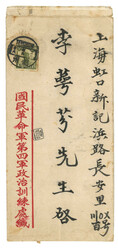 上海虹口新記浜路長安里
李萼芬先生啓
國民革命軍第四軍政治訓練處緘